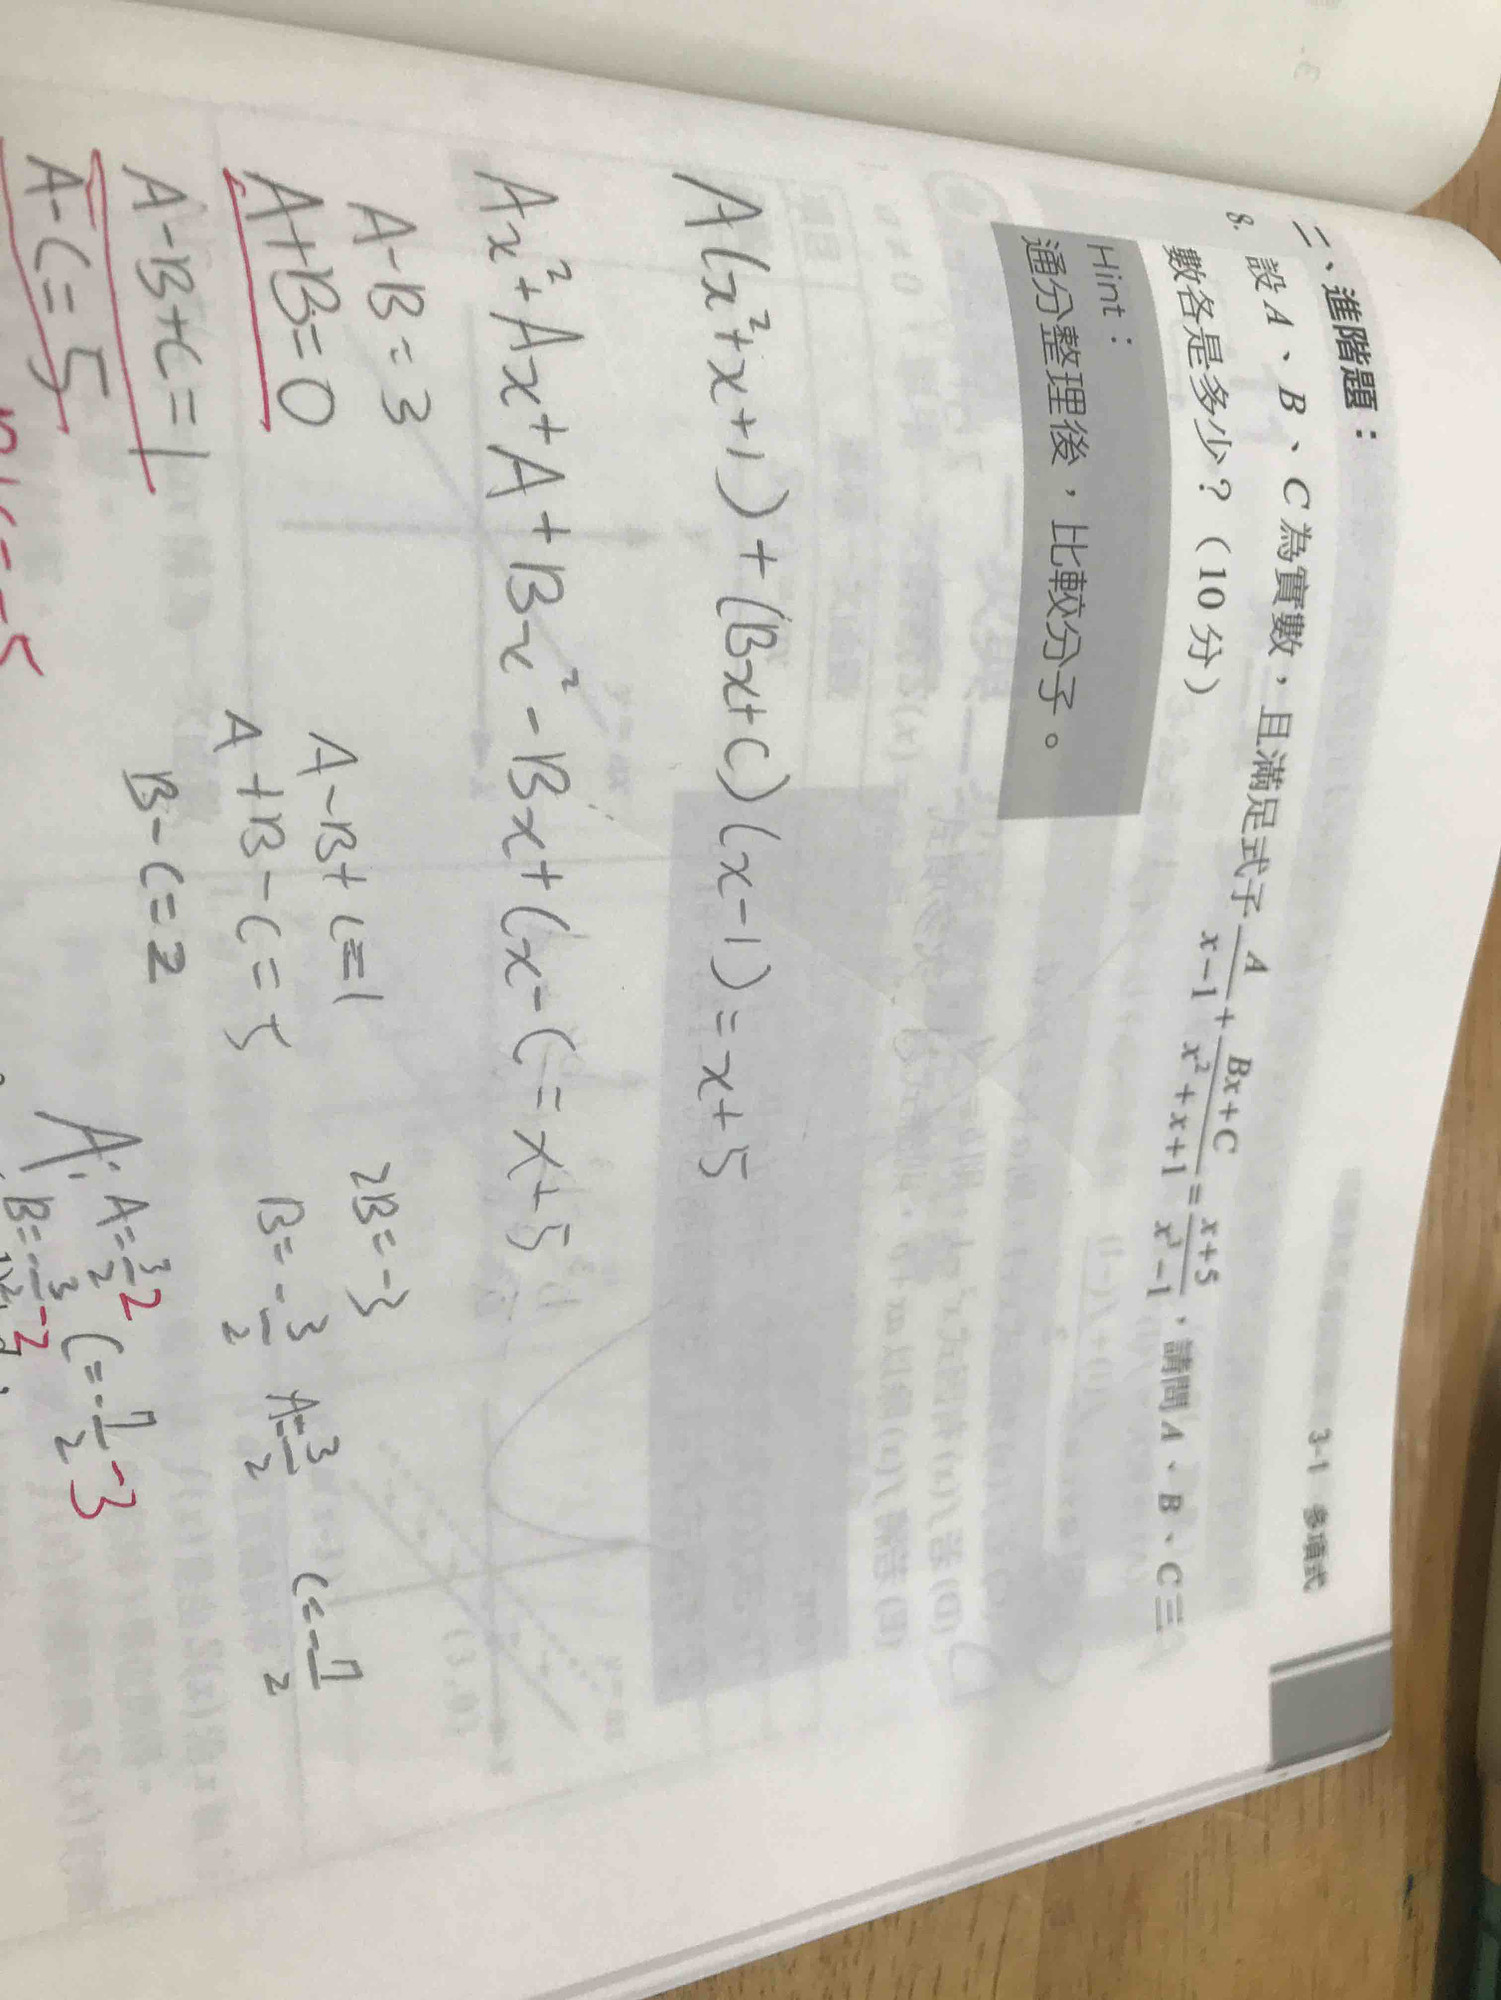 3-1 多項式
二、進階題：
8. 設A、B、C為實數，且滿足式子 A/(x-1) + (Bx+C)/(x²+x+1) = (x+5)/(x³-1)，請問A、B、C三
數各是多少？（10分）
Hint：
通分整理後，比較分子。
A(x²+x+1)+(Bx+C)(x-1)=x+5
Ax²+Ax+A+Bx²-Bx+Cx-C=x+5
A-B=3
A+B=0
A-B+C=1
A-C=5
A-B+C=1
A+B-C=5
B-C=2
2B=-3
B=-3/2 A=3/2 C=-7/2
A: A=3/2 2 C=-7/2 -3
B=-3/2 -2